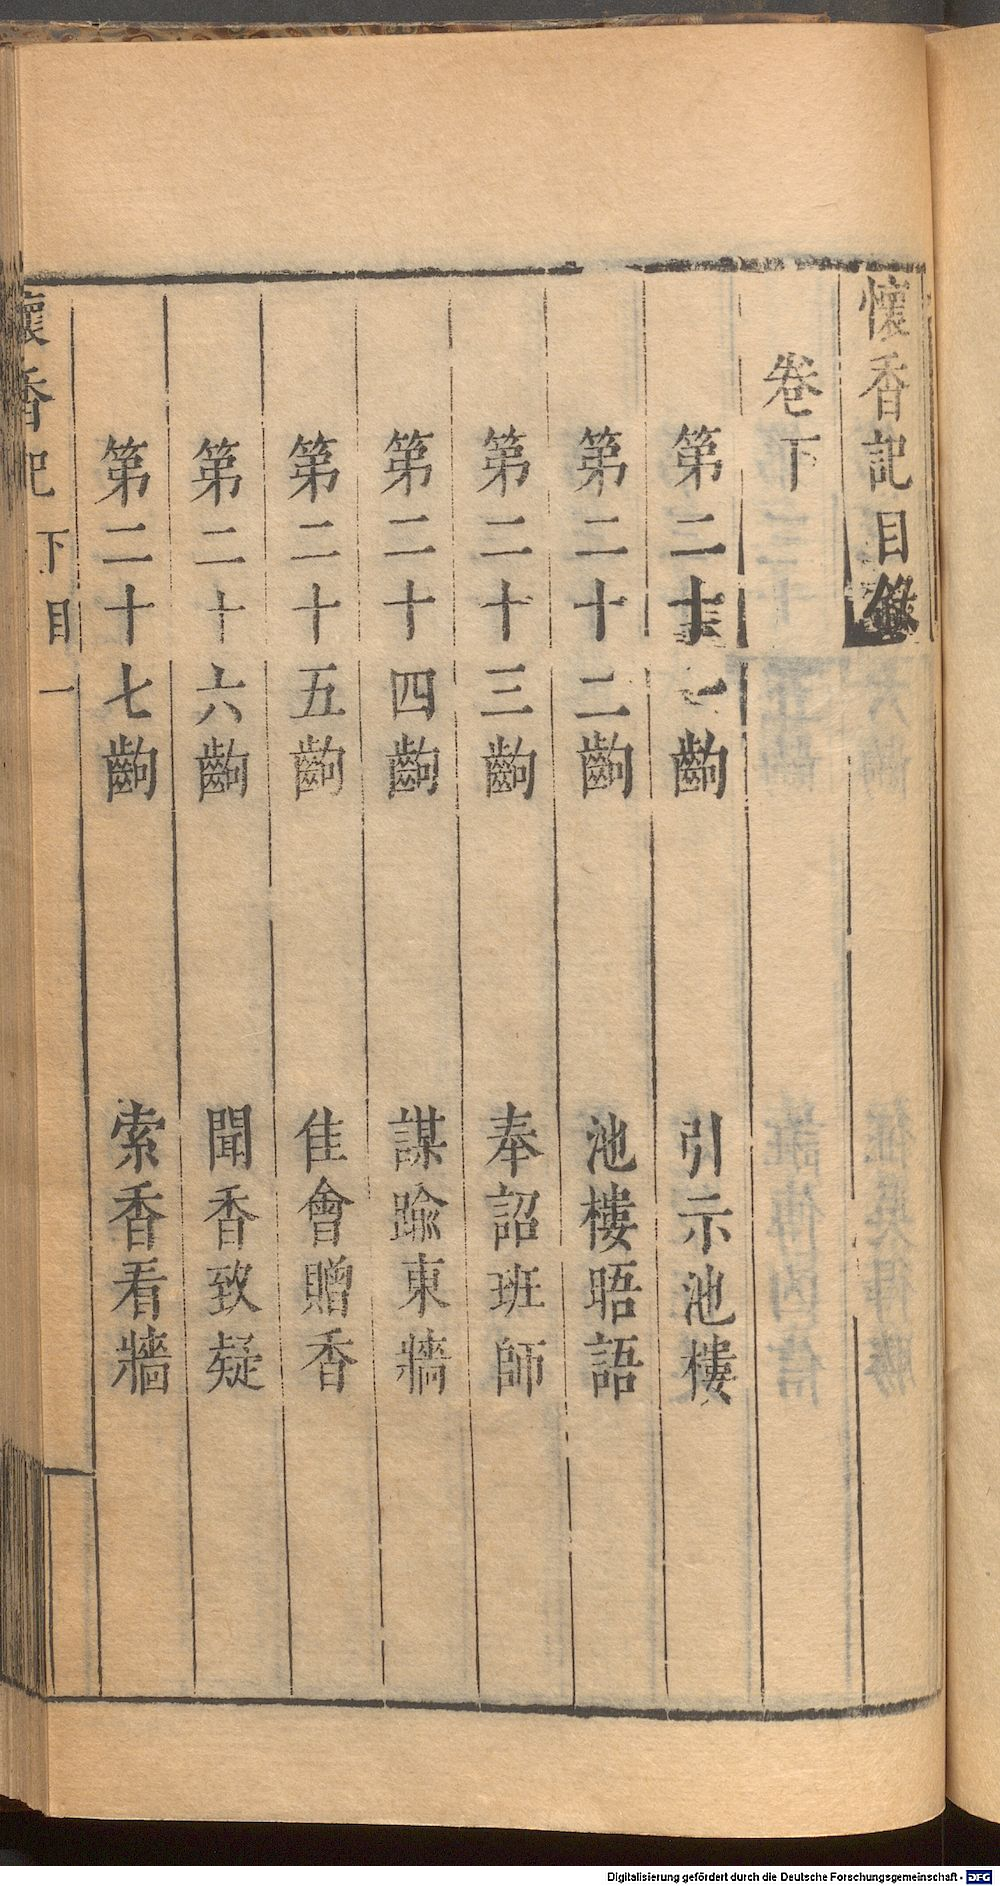 懷香記目錄
卷下
第二十一齣 引示池樓
第二十二齣 池樓晤語
第二十三齣 奉詔班師
第二十四齣 謀踰東牆
第二十五齣 佳會贈香
第二十六齣 聞香致疑
第二十七齣 索香看牆
懷香記 下目 一
Digitalisierung gefördert durch die Deutsche Forschungsgemeinschaft - DFG